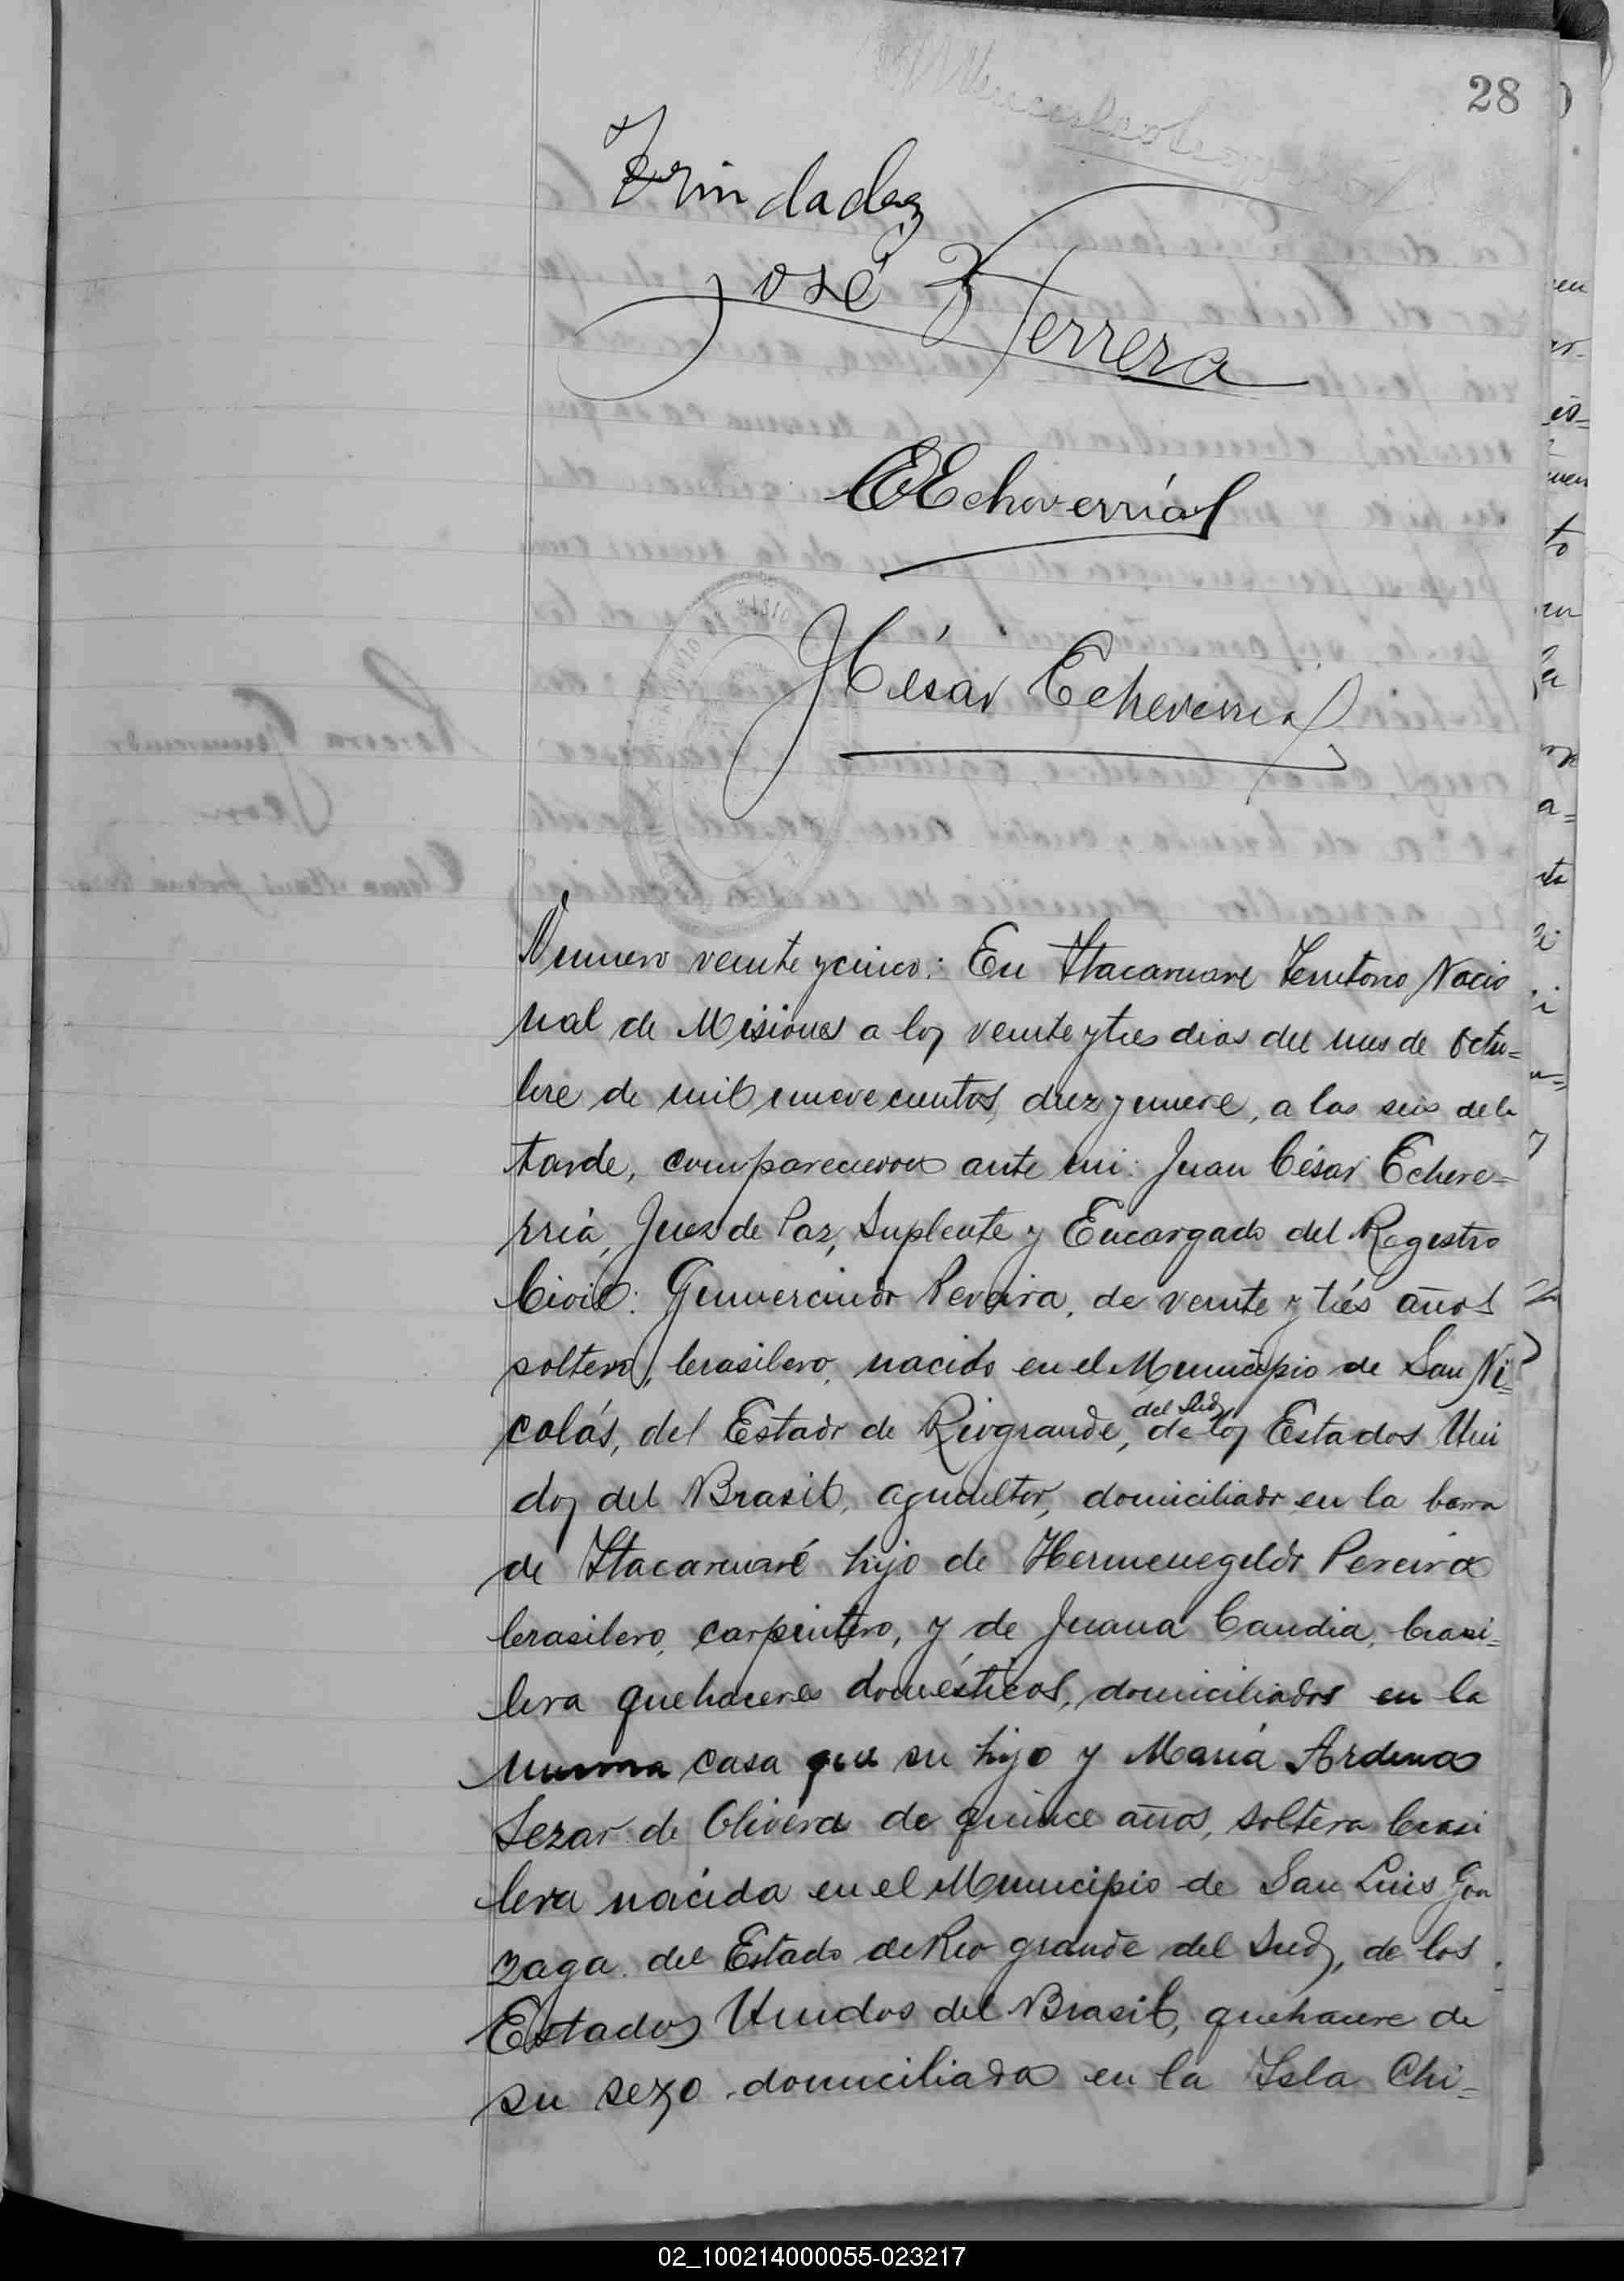 28
Trindades
José Herrera
Echeverría
J César Echeverria
Numero veinte y cinco: En Itacaruare Territorio Nacio
nal de Misiones a los veinte y tres dias del mes de Octu=
bre de mil nuevecientos, diez y nueve, a las seis de la
tarde, comparecieron ante mi: Juan César Echeve=
rria, Juez de Paz, Suplente y Encargado del Registro
Civil: Gumercindo Pereira, de veinte y trés años
soltero, brasilero, nacido en el Municipio de San Ni=
colás, del Estado de Riogrande, del Sud, de los Estados Uni
dos del Brasil, agricultor, domiciliado en la barra
de Itacaruaré hijo de Hermenegildo Pereira
brasilero, carpintero, y de Juana Candia, brasi=
lera quehaceres domésticos, domiciliados en la
misma casa que su hijo y María Ardina
Sezar de Olivera de quince años, soltera brasi
lera nacida en el Municipio de San Luis Gon
zaga del Estado de Rio grande del Sud, de los
Estados Unidos del Brasil, quehacere de
su sexo domiciliada en la Isla Chi=
02_100214000055-023217